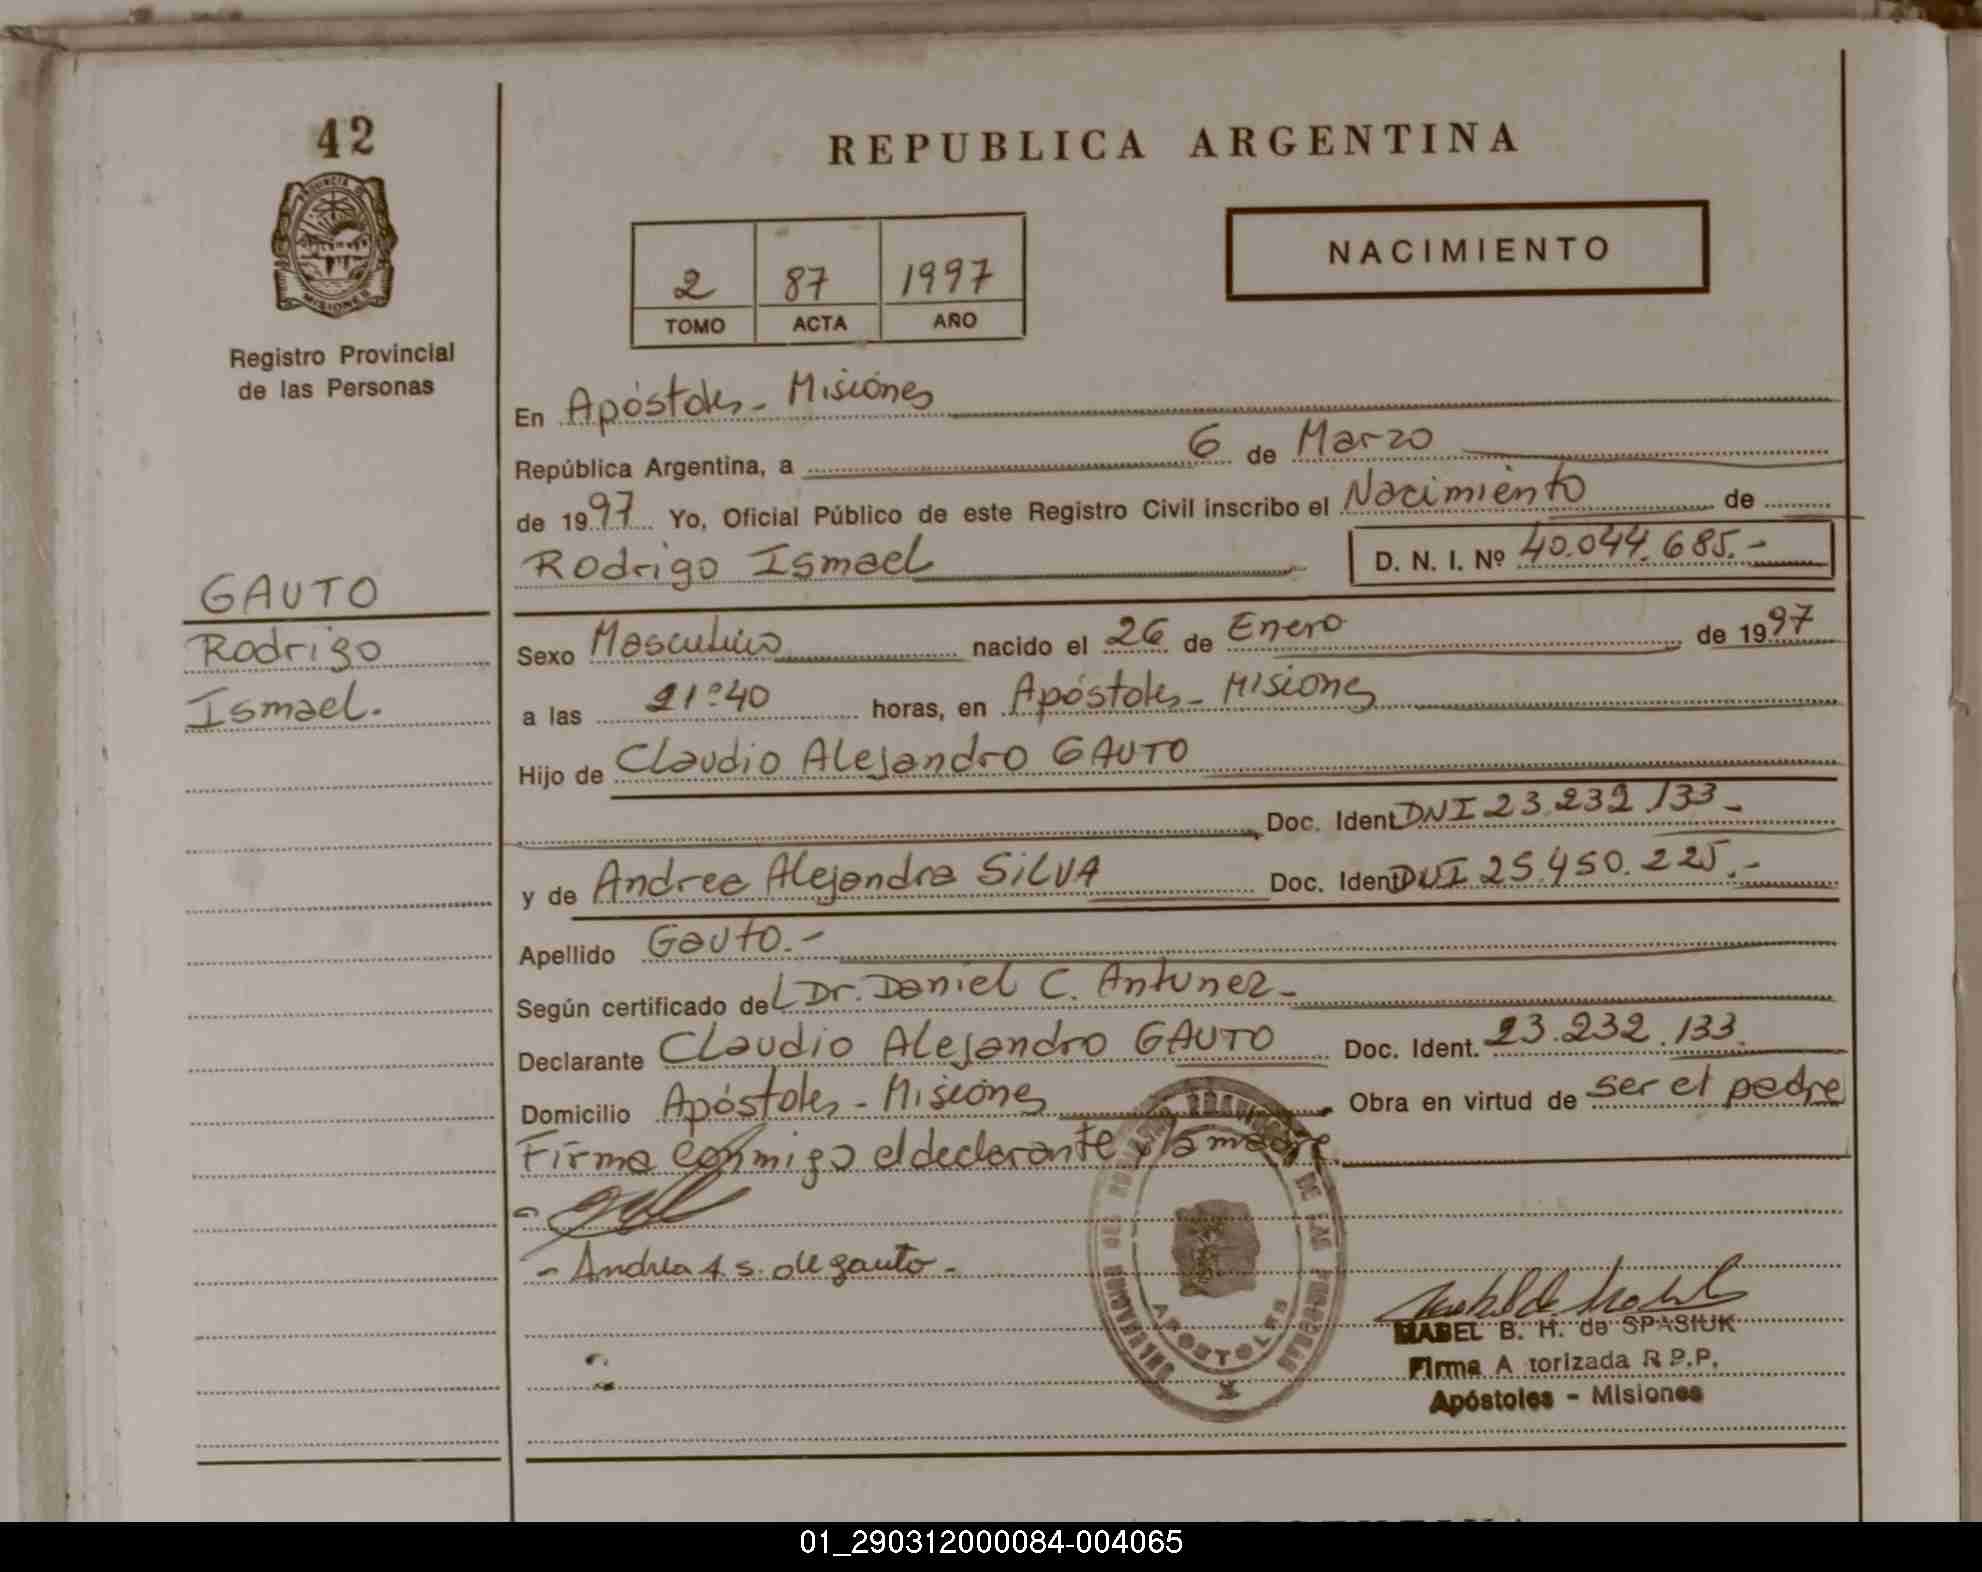 42
REPUBLICA ARGENTINA
PROVINCIA DE
MISIONES
NACIMIENTO
2 87 1997
TOMO ACTA AÑO
Registro Provincial
de las Personas
En Apóstoles - Misiones
República Argentina, a 6 de Marzo
de 1997 Yo, Oficial Público de este Registro Civil inscribo el Nacimiento de
Rodrigo Ismael D. N. I. Nº 40.044.685.-
GAUTO
Rodrigo
Ismael.
Sexo Masculino nacido el 26 de Enero de 1997
a las 21:40 horas, en Apóstoles - Misiones
Hijo de Claudio Alejandro GAUTO
Doc. Ident DNI 23.232.133-
y de Andrea Alejandra SILVA Doc. Ident DNI 25.450.225.-
Apellido Gauto.-
Según certificado del Dr. Daniel C. Antunez-
Declarante Claudio Alejandro GAUTO Doc. Ident. 23.232.133.
Domicilio Apóstoles - Misiones Obra en virtud de ser el padre
Firma conmigo el declarante y la madre.
- Andrea A. S. de gauto -
APOSTOLES
MABEL B. H. de SPASIUK
Firma A torizada R.P.P.
Apóstoles - Misiones
01_290312000084-004065